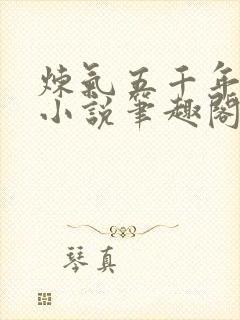 炼氣五千年
小説筆趣閣
琴真